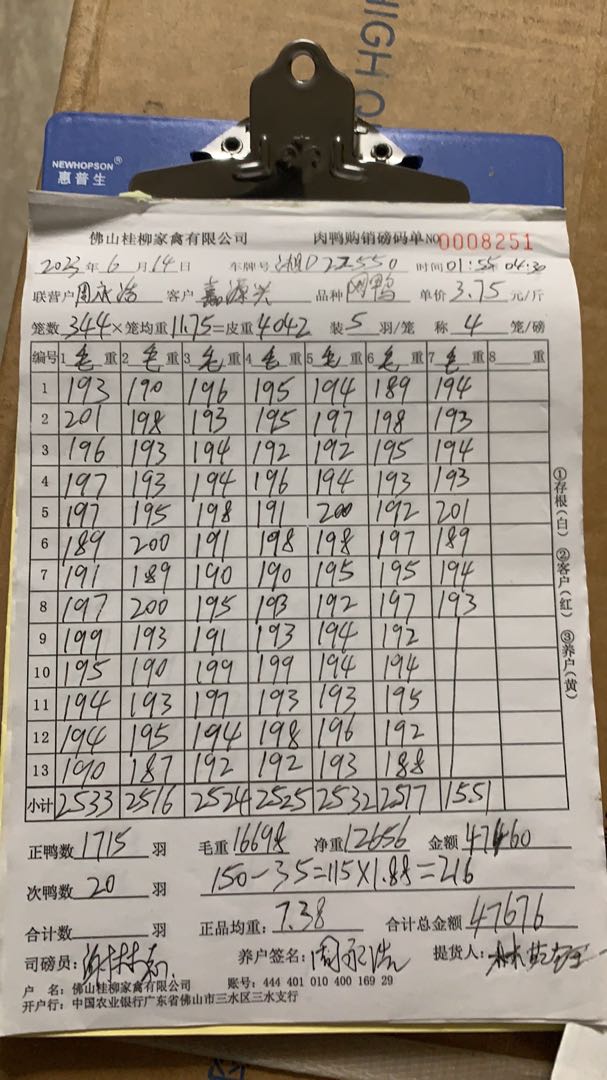 HIGH Q
NEWHOPSON®
惠普生
佛山桂柳家禽有限公司 肉鸭购销磅码单 NO 0008251
2023年6月14日 车牌号 湘D22550 时间 01:55 04:30
联营户 周永浩 客户 嘉源兴 品种 肉鸭 单价 3.75 元/斤
笼数 344×笼均重 11.75=皮重 4042 装 5 羽/笼 称 4 笼/磅
编号 1 毛重 2 毛重 3 毛重 4 毛重 5 毛重 6 毛重 7 毛重 8 重
1 193 190 196 195 194 189 194
2 201 198 193 195 197 198 193
3 196 193 194 192 192 195 194
4 197 193 194 196 194 193 193
5 197 195 198 191 200 192 201
6 189 200 191 198 198 197 189
7 191 189 190 190 195 195 194
8 197 200 195 193 192 197 193
9 199 193 191 193 194 192
10 195 190 199 199 194 194
11 194 193 197 193 193 195
12 194 195 194 198 196 192
13 190 187 192 192 193 188
小计 2533 2516 2524 2525 2532 2517 1551
①存根(白) ②客户(红) ③养户(黄)
正鸭数 1715 羽 毛重 16698 净重 12656 金额 47460
次鸭数 20 羽 150-35=115×1.88=216
合计数 羽 正品均重: 7.38 合计总金额 47676
司磅员: 养户签名: 周永浩 提货人:
户 名: 佛山桂柳家禽有限公司 账号: 444 401 010 400 169 29
开户行: 中国农业银行广东省佛山市三水区三水支行